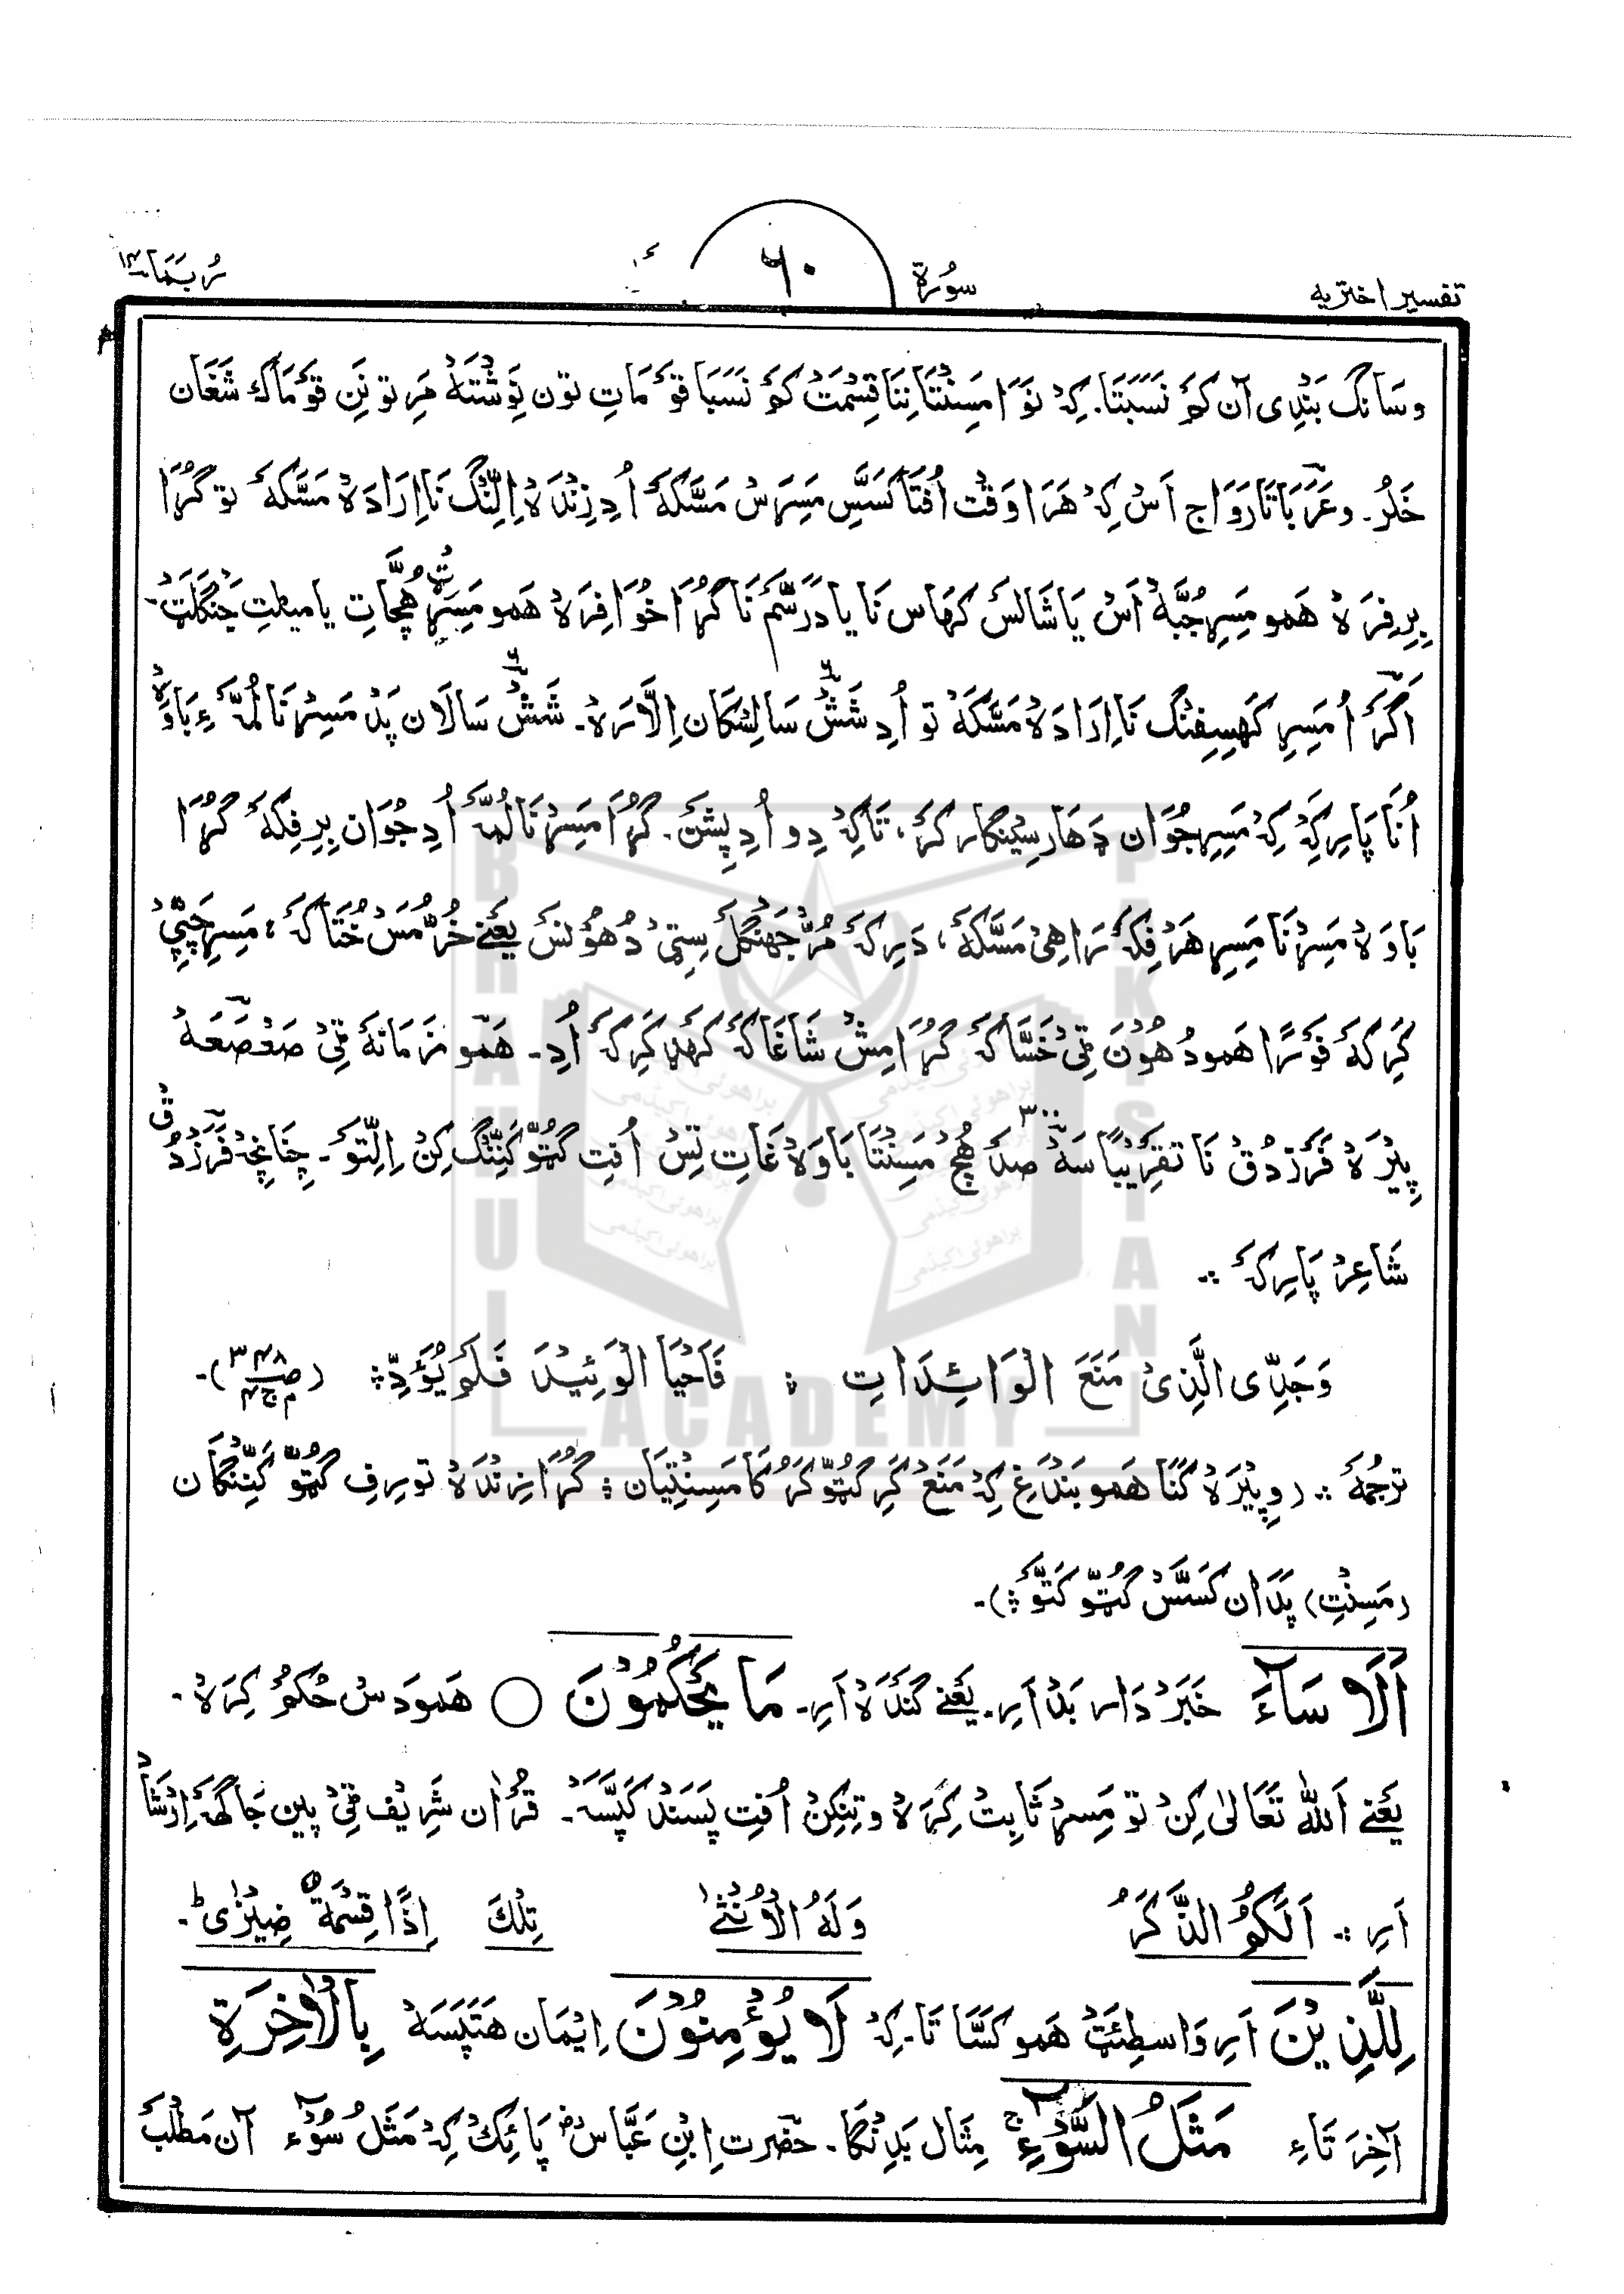 تفسیر اختریه
سُورة
٦٠
رُبَمَا ١٤
وسَانگ بَنْدِی آن کم نَسَبتَا۔ کہ نَوَا مَسِنْتَا نِنَا قِسْمَتْ کم نَسَبَا قَوْمَاتِ تون نِوِشْتَہ مَرِ تو نَن قَوْمَاک شَغَان
خَلُر۔ و عَرَبَاتَا رَوَاج اَسْ کِہ هَرَا وَقْت اُفْتَا کَسَّے مَسِرَسْ مَسَّکہ اُدِ زِنْدَہ اِلِّنْگ نَا اِرَادَہ مَسَّکہ تو گُرَا
بِرِفِرَہ هَمو مَسِرِ جُبَّہ اَسْ یَا شَالَسْ کَهَاس نَا یا دَرشَم نَا گُرَا خُوَافِرَہ هَمو مَسِرِ هُچَّاتِ یا میلتِ جَنْگَلَتْ۔
اَگر اُ مَسِرِ کَهسِفِنْگ نَا اِرَادَہ مَسَّکَہ تو اُدِ شَشْ سَالِسْکَان اِلَّارَہ۔ شَشْ سَالَان پَد مَسِرْ نَا لُمَّہ ءِ بَاوَہ
اُنَا پَارِکَہ کِہ مَسِرِ جُوَان دَهَارسِینگار کر، تَاکِہ دِو اُدِ پِشَن۔ گُرَا مَسِرْ نَا لُمَّہ اُدِ جُوَان بِرِفِکَہ گُرَا
بَاوَہ مَسِرْ نَا مَسِرِ هَرفِکَہ رَاهِیْ مَسَّکہ، دَیرِکہ مُرّ جَهَنْگَل سِتی دُهونَسْ یَعْنِے خُرُّمَسْ خُتَّاکہ، مَسِرِ چَپِّیْ
کَرِکَہ فَوْرًا هَمو دُهُونَ ٹِی خَسَّاکَہ گُرَا مِشْ شَاغَاکَہ کَهلِ کَرِکَہ اُدِ۔ هَمو زَمَانَہ ٹِی صَعْصَعَہ
پِیْرَہ فَرَزْدُق نَا تَقْرِیْبًا سَہ صَد ٣٠٠ هُچ مَسِنْتَا بَاوَہ غَاتِ تِسْ اُفْتِ گُٹُّو کَنِنْگ کِنْ اِلِّتَو۔ چِنَانچِہ فَرَزْدُق
شَاعِرْ پَارِکَہ :۔
وَجَدِّی الَّذِیْ مَنَعَ الْوَائِدَاتِ ؛ فَاَحْیَا الْوَئِیْدَ فَلَمْ یُؤَدِ ؛ (ص ٣٤٨ م ج ٤)۔
تَرجُمَہ :۔ (و پِیْرَہ کَنَا هَمو بَنْدَغ کِہ مَنَعْ کَرِ گُٹُّو کَرُکَا مَسِنْتِیَان ؛ گُرَا زِنْدَہ تورِفِ گُٹُّو کَنِنْگَان
(مَسِنْتِ) پَدَان کَسَسْ گُٹُّو کَتَو ؛)۔
اَلَا سَآءَ خَبَرْدَار بَدْ اَرِ۔ یَعْنِے گَنْدَہ اَرِ۔ مَا یَحْکُمُوْنَ ○ هَمو دَسْ حُکْم کِرَہ۔
یَعْنِے اَللّٰہ تَعَالٰی کِنْ تو مَسِرْ ثَابِتْ کِرَہ و تِنکِنْ اُفْتِ پَسَنْد کَپَّسَہ۔ قُرْاٰن شَرِیْف ٹِیْ پین جَاگَہ اِرْشَاد
اَرِ :۔ اَلَکُمُ الذَّکَرُ وَلَہُ الْاُنْثٰے تِلْکَ اِذًا قِسْمَةٌ ضِیْزٰی ط۔
لِلَّذِیْنَ اَرِ وَاسطِئَتْ هَمو کَسَّاتَا۔ کِہ لَا یُؤْمِنُوْنَ اِیْمَان هَتَپَسَہ بِالْاٰخِرَةِ
آخِرَتَاءِ مَثَلُ السَّوْءِ ج مِثَال بَدِنگا۔ حضرت اِبْنِ عَبَّاس رض پَائِکْ کِہ مَثَل سُوْء آن مَطْلَبْ